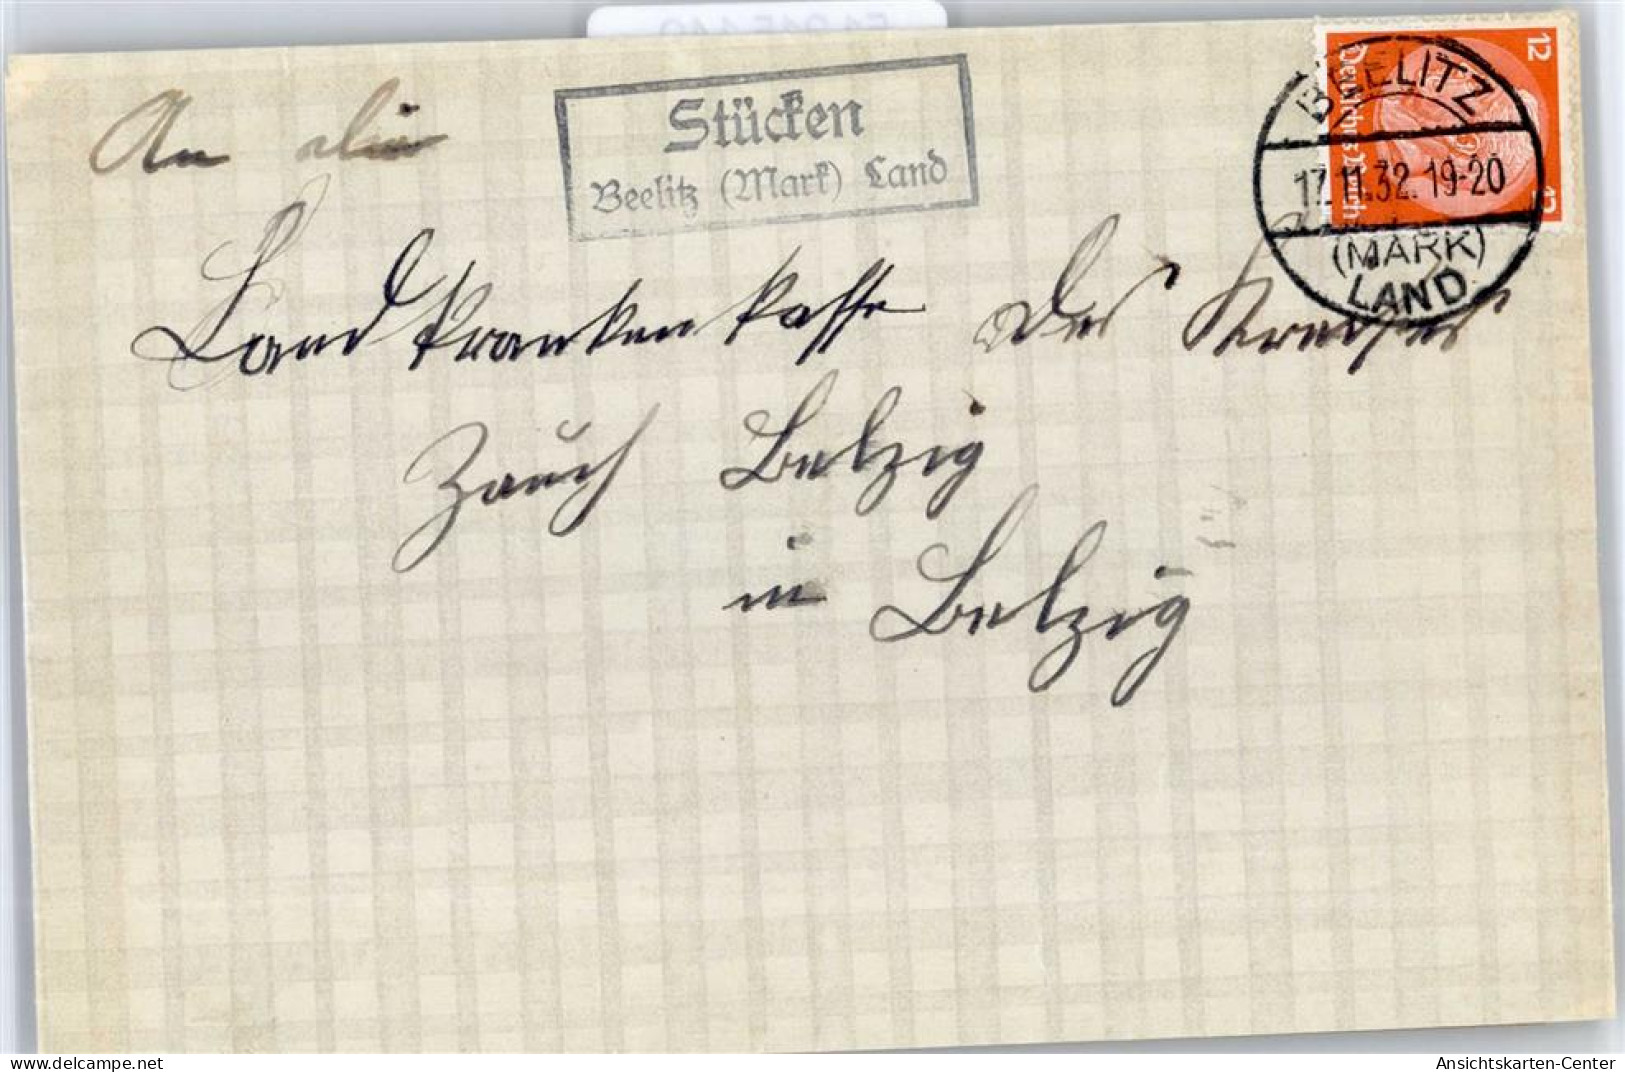 An die
Stücken
Beelitz (Mark) Land
12
Deutsches Reich
12
BEELITZ
17.11.32.19-20
(MARK)
LAND
Landkrankenkasse des Kreises
Zauch Belzig
in Belzig
Ansichtskarten-Center
delcampe.net